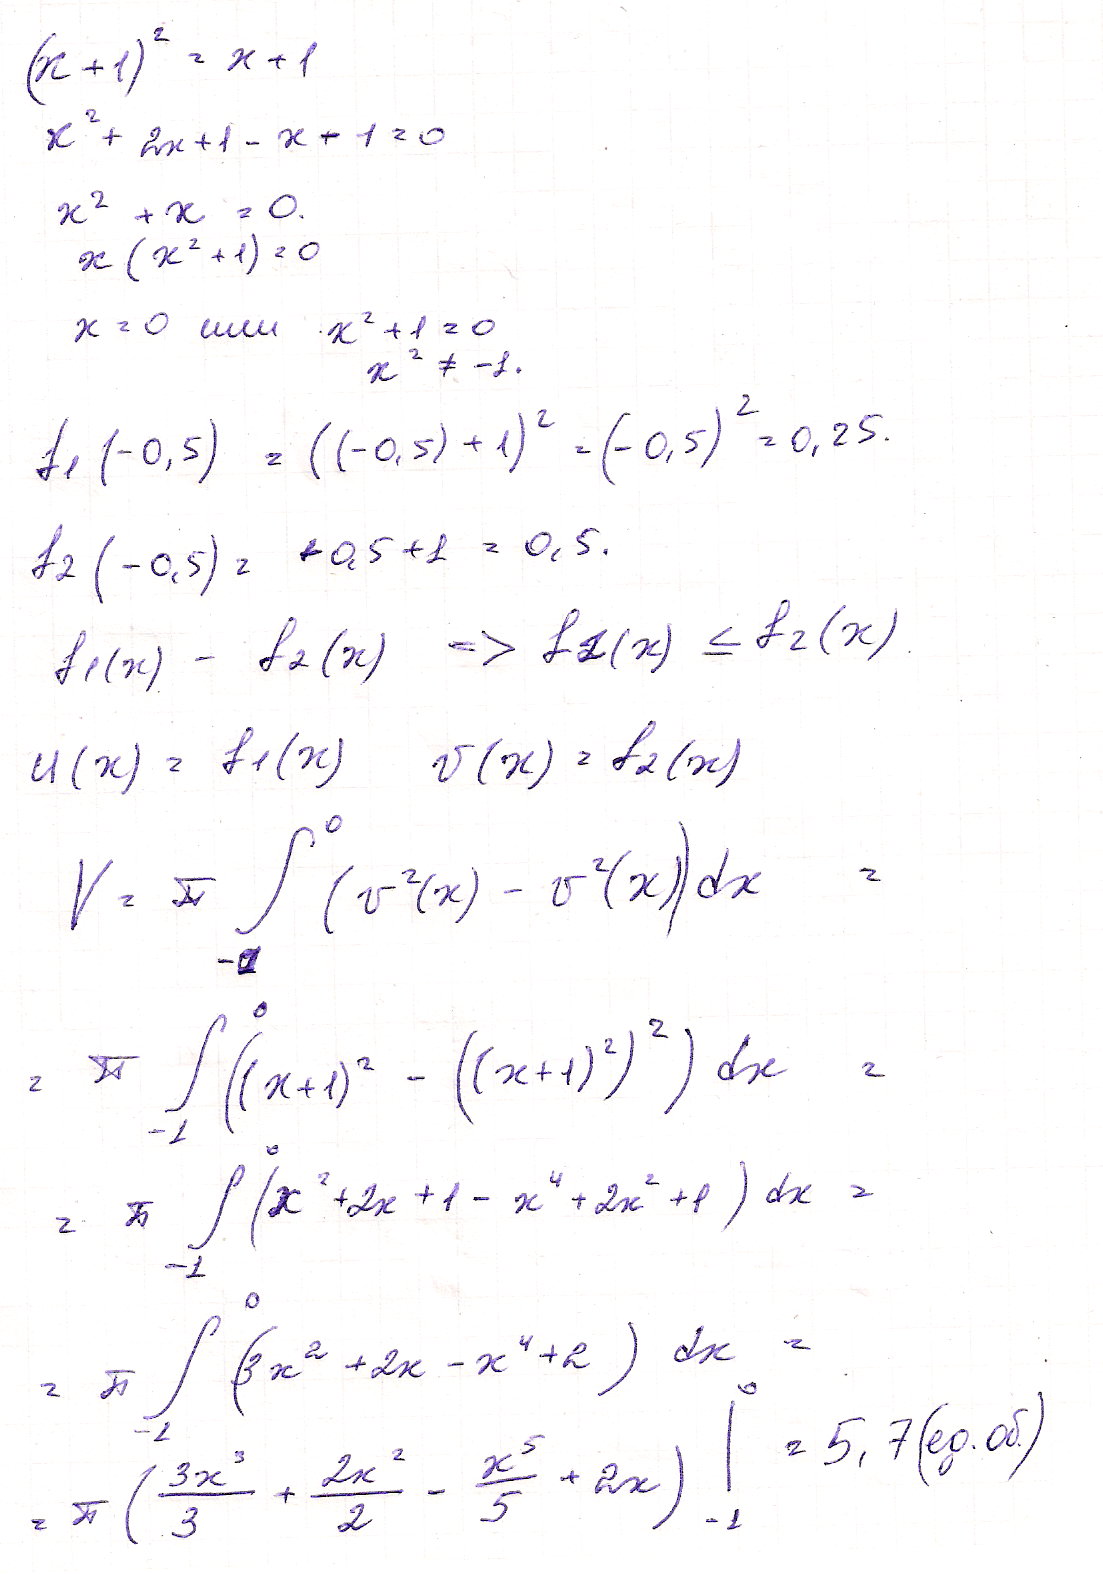 (x+1)² = x+1
x² + 2x+1 - x + 1 = 0
x² + x = 0.
x (x² + 1) = 0
x = 0 или x² + 1 = 0
x² ≠ -1.
f₁(-0,5) = ((-0,5)+1)² = (-0,5)² = 0,25.
f₂(-0,5) = -0,5+1 = 0,5.
f₁(x) - f₂(x) => f₁(x) ≤ f₂(x)
u(x) = f₁(x) v(x) = f₂(x)
V = π ∫₋₁⁰ (v²(x) - v²(x)) dx =
= π ∫₋₁⁰ ((x+1)² - ((x+1)²)²) dx =
= π ∫₋₁⁰ (x² + 2x + 1 - x⁴ + 2x² + 1) dx =
= π ∫₋₁⁰ (3x² + 2x - x⁴ + 2) dx =
= π (3x³/3 + 2x²/2 - x⁵/5 + 2x) |₋₁⁰ = 5,7 (ед. об.)